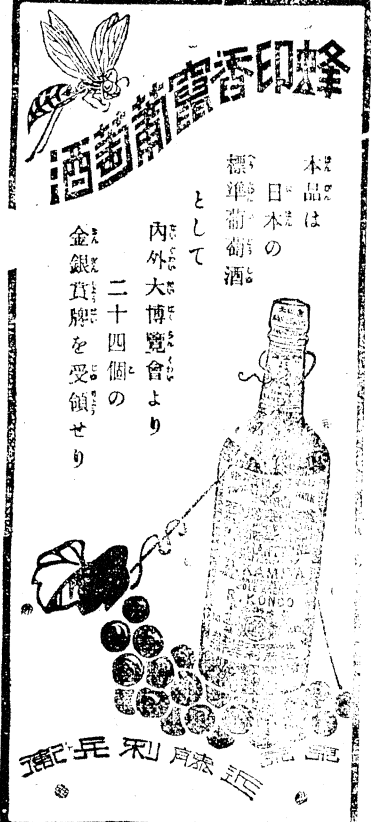 蜂印香竄葡萄酒
本品は
日本の
標準葡萄酒
として
內外大博覽會より
二十四個の
金銀賞牌を受領せり
KAMIYA
R. KONDO
東京 近藤利兵衛